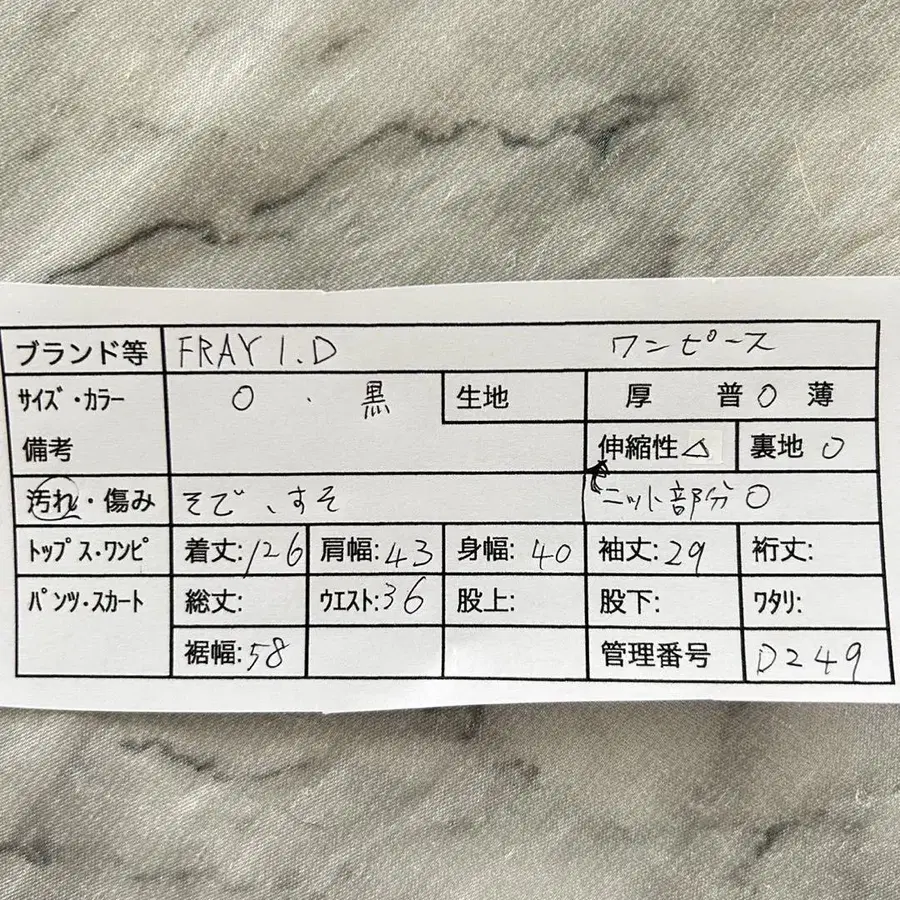 ブランド等 FRAY I.D ワンピース
サイズ・カラー 0 . 黒 生地 厚 普 ○ 薄
備考 伸縮性 △ 裏地 ○
汚れ・傷み そで、すそ ニット部分○
トップス・ワンピ 着丈:126 肩幅:43 身幅:40 袖丈:29 裄丈:
パンツ・スカート 総丈: ウエスト:36 股上: 股下: ワタリ:
裾幅:58 管理番号 D249